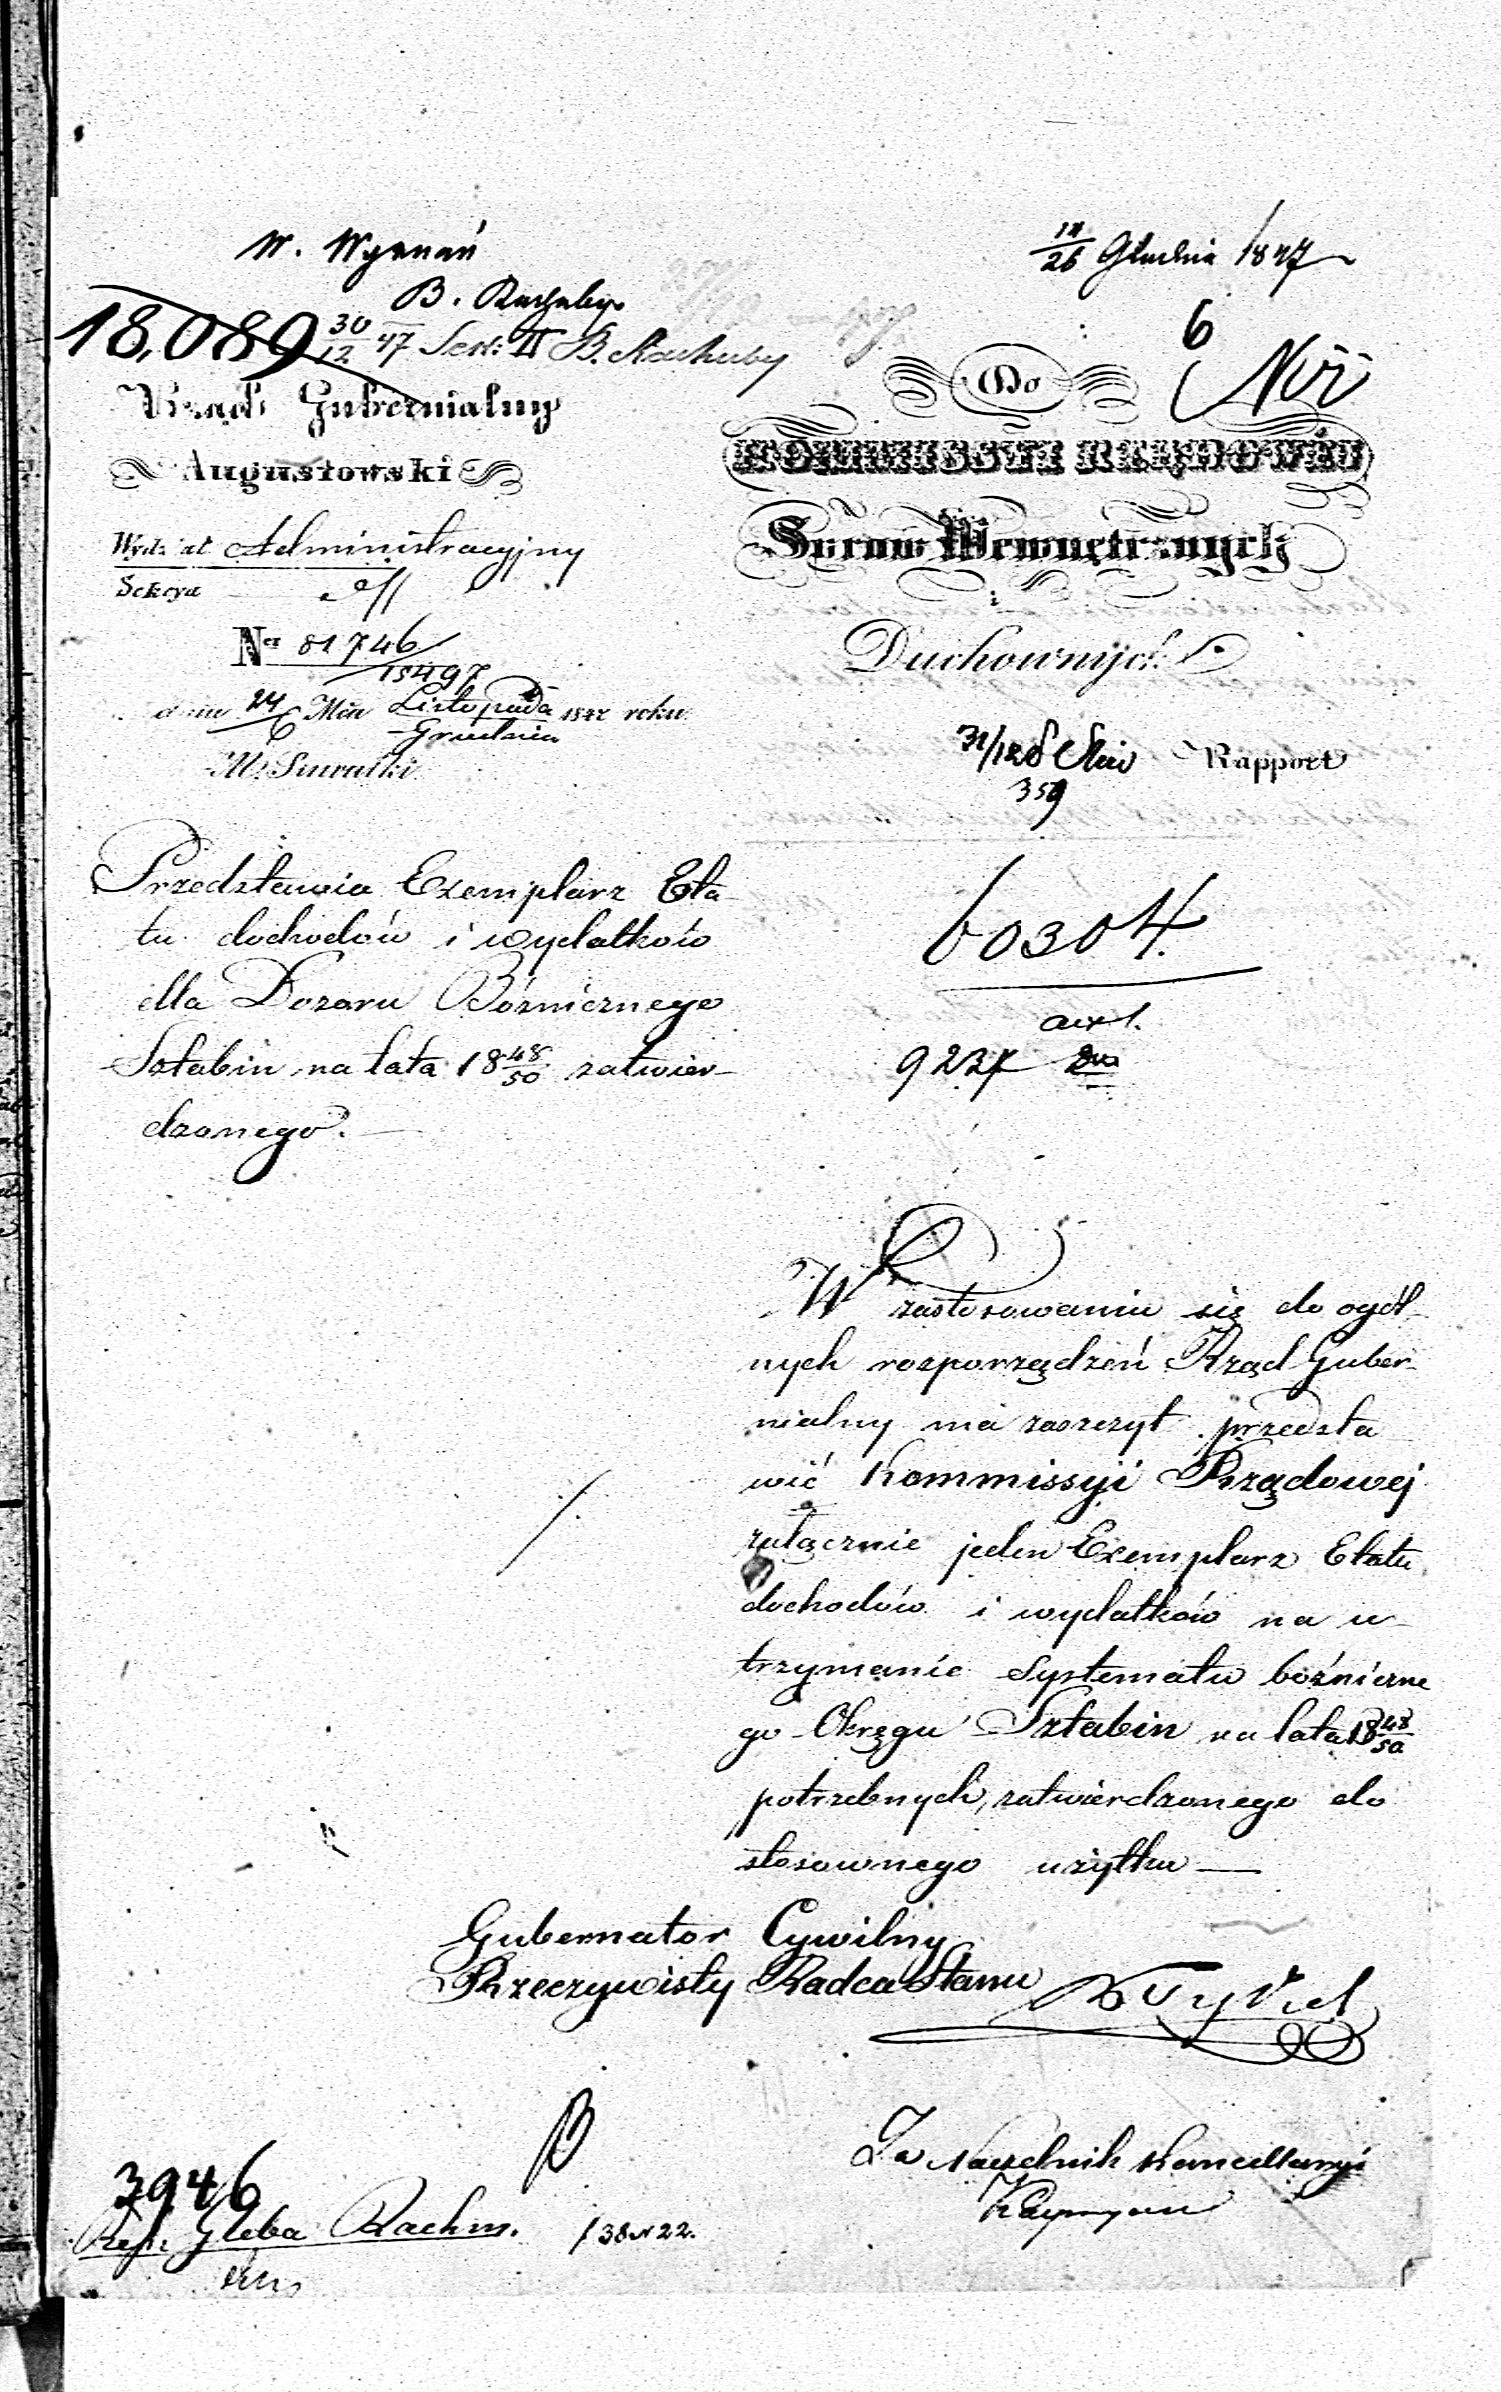 W. Wyznań
B. Rachuby
18,089 30/12 47 Sek: II B. Rachuby
Rząd Gubernialny
Augustowski
Wydział Administracyjny
Sekcya
Ner 81746/15497
dnia 24/6 Mca Listopada/Grudnia 1847 roku
w Suwałki
14/26 Grudnia 1847
6
Do
KOMMISSYI RZĄDOWÉJ
Spraw Wewnętrznych
i
Duchownych
Rapport
359
Przedstawia Exemplarz Eta-
tu dochodów i wydatków
dla Dozoru Bóżnicznego
Sztabin na lata 18 48/50 zatwier-
dzonego.
60304.
9237
W zastosowaniu się do ogól-
nych rozporządzeń Rząd Guber-
nialny ma zaszczyt przedsta
wić Kommissyi Rządowej
załącznie jeden Exemplarz Etatu
dochodów i wydatków na u-
trzymanie Systematu bóźniczne
go Okręgu Sztabin na lata 18 48/50
potrzebnych, zatwierdzonego do
stosownego użytku —
Gubernator Cywilny
Rzeczywisty Radca Stanu
Za Naczelnik Kancellaryi
3946
Rep: Gleba Rachm. 138 N 22.